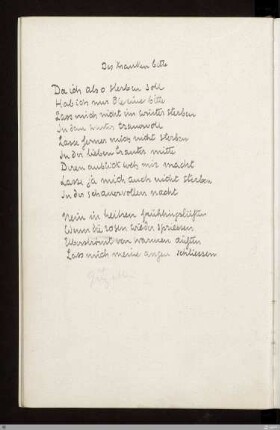 Des Kranken bitte
Da ich also sterben soll
Hab ich nur die eine bitte
Lass mich nicht im winter sterben
In dem winter trauervoll
Lasse ferner mich nicht sterben
In der lieben trauter mitte
Deren anblick weh mir macht
Lasse ja mich auch nicht sterben
In der schauervollen nacht
Nein in heitren frühlingslüften
Wenn die rosen wieder spriessen
Überströmt von warmen düften
Lass mich meine augen schliessen